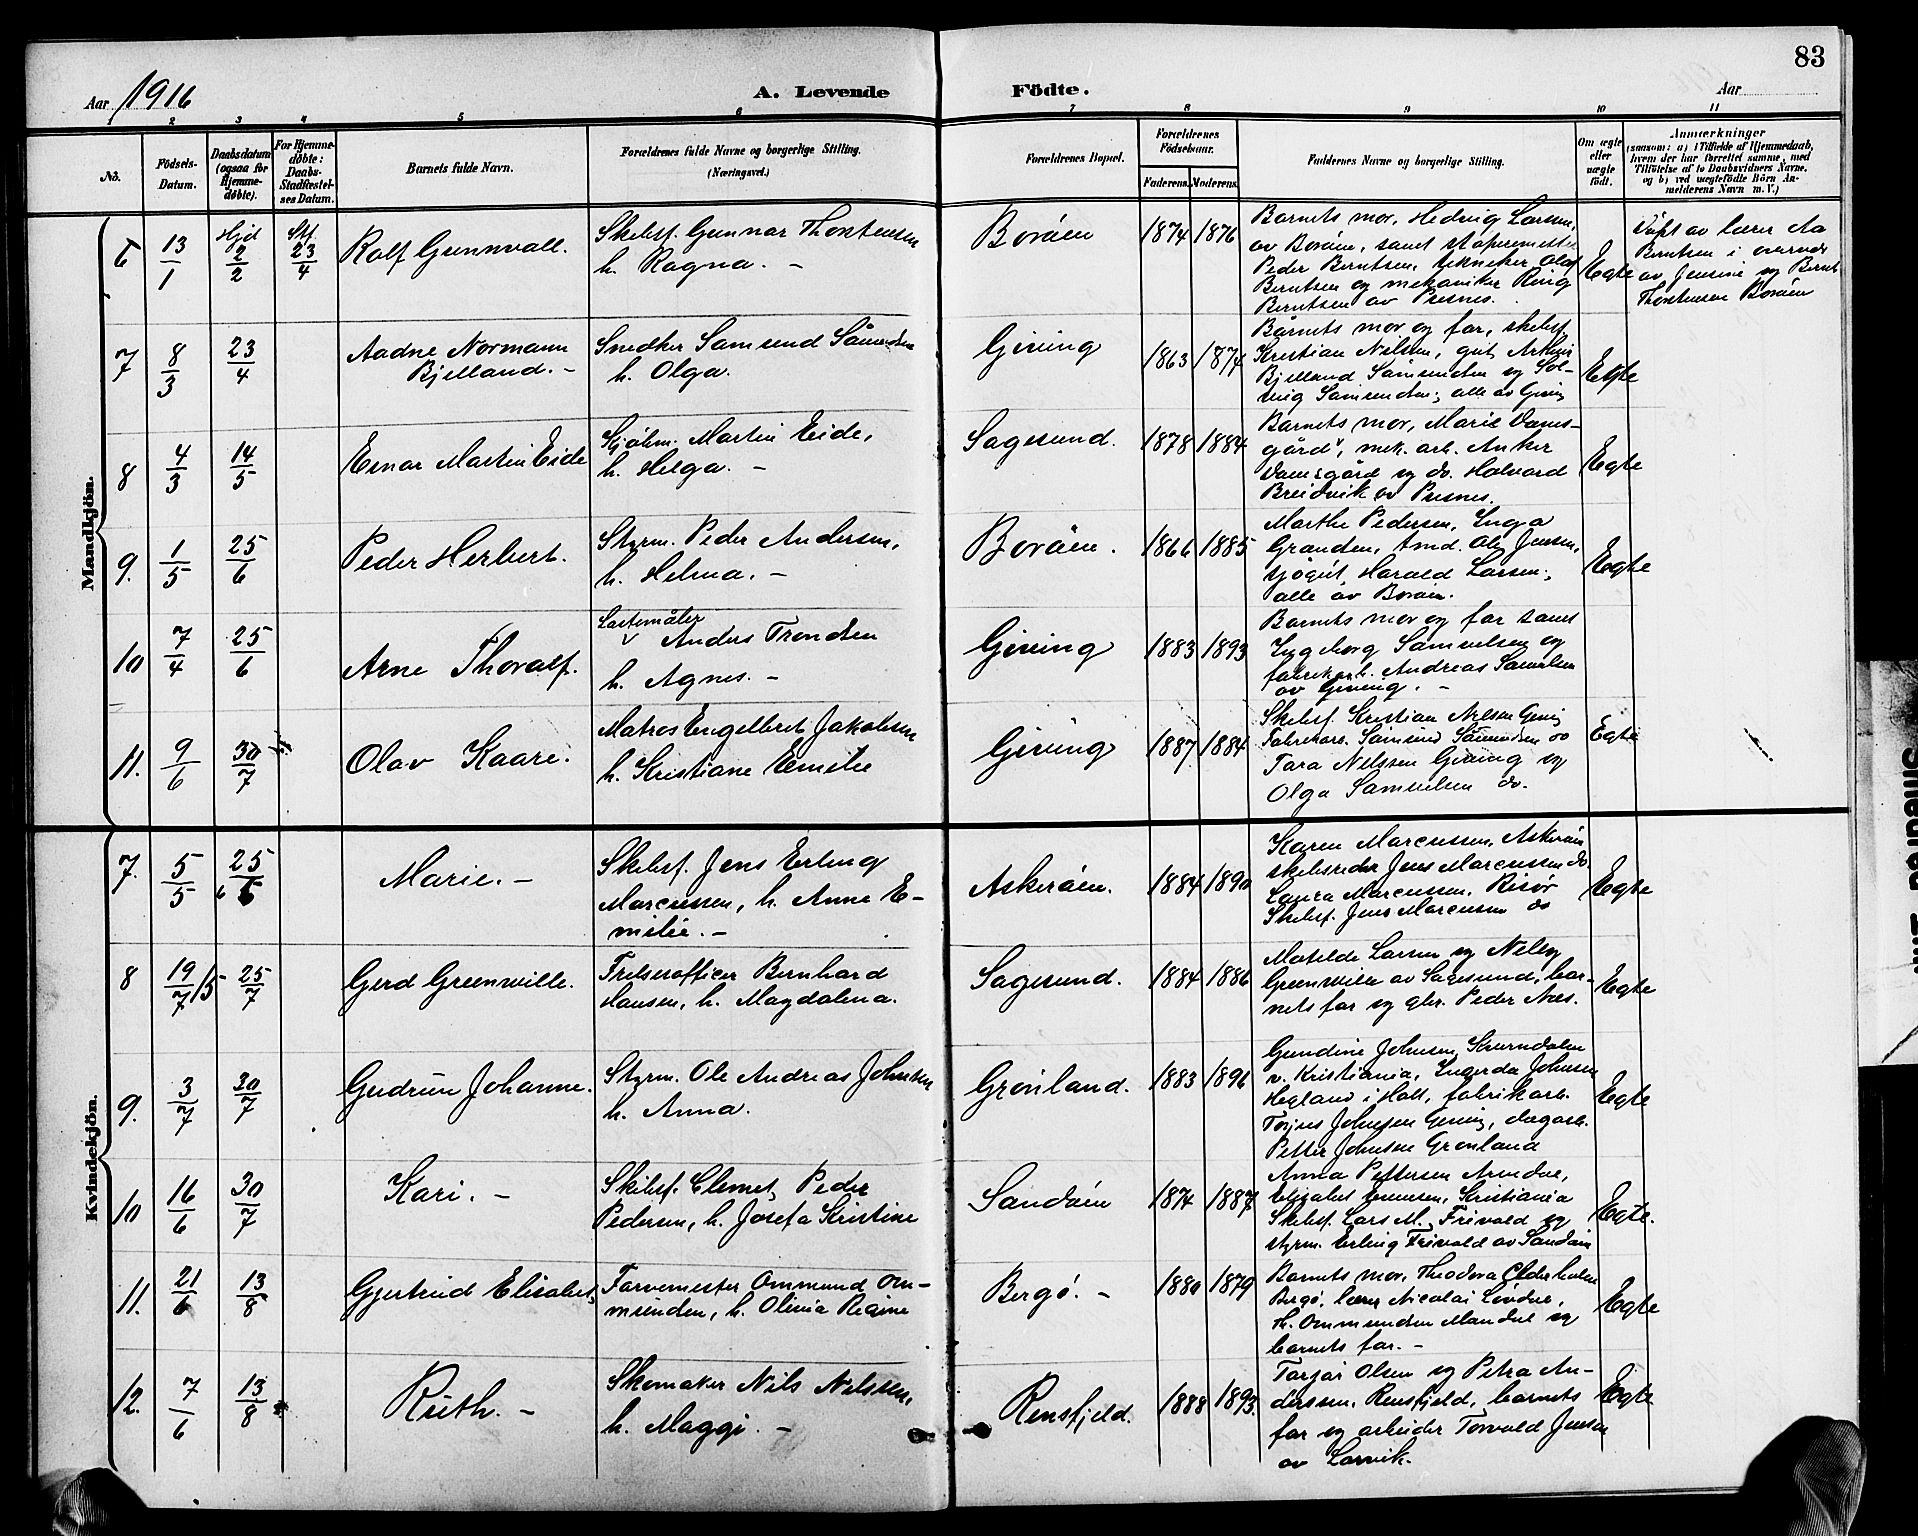 83
Aar 1916
A. Levende
Födte.
Aar
1 2 3 4 5 6 7 8 9 10 11
No.
Födsels-
Datum.
Daabsdatum
(ogsaa for
Hjemme-
döbte).
For Hjemme-
döbte:
Daabs-
Stadfæstel-
ses Datum.
Barnets fulde Navn.
Forældrenes fulde Navne og borgerlige Stilling.
(Næringsvei.)
Forældrenes Bopæl.
Forældrenes
Födselsaar.
Faderens. Moderens.
Faddernes Navne og borgerlige Stilling.
Om ægte
eller
uægte
födt.
Anmærkninger
(saasom: a) i Tilfælde af Hjemmedaab,
hvem der har forrettet samme, med
Tilföielse af to Daabsvidners Navne,
og b) ved uægtefödte Börn An-
melderens Navn m. V.)
Mandkjön.
6 13/1 Hjd 2/2 Stf. 23/4
Rolf Gunnvall.
Skibsf. Gunnar Thorstensen
h. Ragna. -
Boröen
1874 1876
Barnets mor, Hedvig Larsen,
av Boröen, samt
Peder Berntsen, tekniker Olaf
Berntsen og mekaniker Ring
Berntsen av Presnes.
Egte
Döpt av lærer Aa
Berntsen i overvær
av Jensine og Bernt
Thorstensen Boröen
7 8/3 23/4
Aadne Normann
Bjelland. -
Snedker Samsund
h. Olga.
Giving
1863 1874
Barnets mor og far, skibsf.
Kristian Nilsen, gut Arthur
Bjelland Samundsen og Sol-
veig Samundsen, alle av Giving
Egte
8 4/3 14/5
Einar Martin Eide
Sjöm. Martin Eide,
h. Helga. -
Sagesund.
1878 1884
Barnets mor, Marie Dams-
gård, mek. arb. Anker
Damsgård og do. Halvard
Breidvik av Presnes.
Egte
9. 1/5 25/6
Peder Herbert.
Styrm. Peder Andersen,
h. Helma. -
Boröen.
1866 1885
Marthe Pedersen, Inga
Granden, tmd. Ole Jensen,
sjögut Harald Larsen,
alle av Boröen.
Egte
10 7/4 25/6
Arne Thoralf.
Lastemåler
Anders Trondsen
h. Agnes. -
Giving
1883 1893
Barnets mor og far samt
Ingeborg Samuelsen og
fabrikarb. Andreas Samuelsen
av Giving. -
11. 9/6 30/7
Olav Kaare.
Matros Engelbret Jakobsen
h. Kristiane Emilie
Giving
1887 1884
Skibsf. Kristian Nilsen Giving
Fabrikarb. Samund Samundsen do
Tara Nilssen Giving og
Olga Samuelsen do.
Egte
Kvindekjön.
7. 5/5 25/6
Marie. -
Skibsf. Jens Erling
Marcussen, h. Anne E-
milie. -
Askeröen.
1884 1890
Karen Marcussen, Askeröen
skibsreder Jens Marcussen do.
Laura Marcussen, Risör
Skibsf. Jens Marcussen do
Egte
8 19/7/5 25/7
Gerd Greenville.
Frelserofficer Bernhard
Hansen, h. Magdalena.
Sagesund.
1884 1886
Matilde Larsen og Nelly
Greenville av Sagesund, bar-
nets far og gbr. Peder Næs.
Egte
9. 3/7 30/7
Gudrun Johanne.
Styrm. Ole Andreas Johnsen
h. Anna.
Grönland.
1883 1896
Gundine Johnsen,
v. Kristiania, Ingerda Johnsen
Hegland i Holt, fabrikarb.
Torjus Johnsen Giving, dagarb.
Petter Johnsen Grönland
Egte
10 16/6 30/7
Kari. -
Skibsf. Clemet Peder
Pedersen, h. Josefa Kristine
Sandöen
1874 1887
Anna Pettersen Arendal,
Elizabet Evensen, Kristiania
Skibsf. Lars M. Frivold og
styrm. Erling Frivold av Sandöen
Egte.
11. 21/6 13/8
Gjertrud Elisabet,
Farvemester Ommund Om-
mundsen, h. Olivia Regine
Bergö. -
1880 1879
Barnets mor, Theodora Cederholm
Bergö, lærer Nicolai Lövdal,
Th. Ommundsen Mandal og
barnets far. -
Egte
12. 7/6 13/8
Ruth. -
Skomaker Nils Nilssen,
h. Maggi. -
Rensfjeld.
1888 1893.
Tarjar Olsen og Petra An-
derssen, Rensfjeld, barnets
far og arbeider Torvald Jensen
av Larvik.
Egte